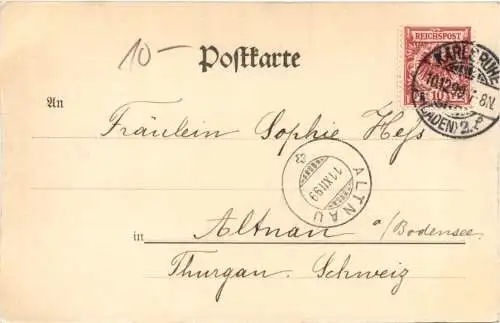 10-
Postkarte
REICHSPOST
10
KARLSRUHE
10.12.99. 7-8N.
(BADEN) 2.
An
Fräulein Sophie Heß
ALTNAU
11.XII.99
in
Altnau a/Bodensee
Thurgau. Schweiz